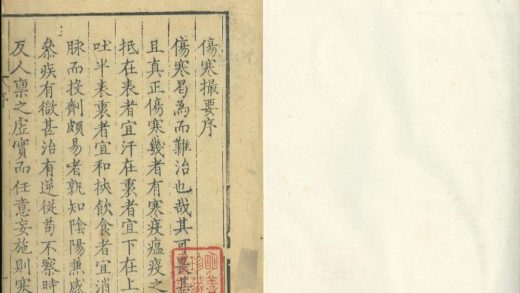 傷寒撮要序
傷寒曷為而難治也哉其可畏甚
且真正傷寒幾者有寒疫瘟疫之
抵在表者宜汗在裏者宜下在上
吐半表裏者宜和挾飲食者宜消
脉而投劑頗易者孰知陰陽兼感
叅疾有微甚治有逆從苟不察時
及人禀之虛實而任意妄施則寒